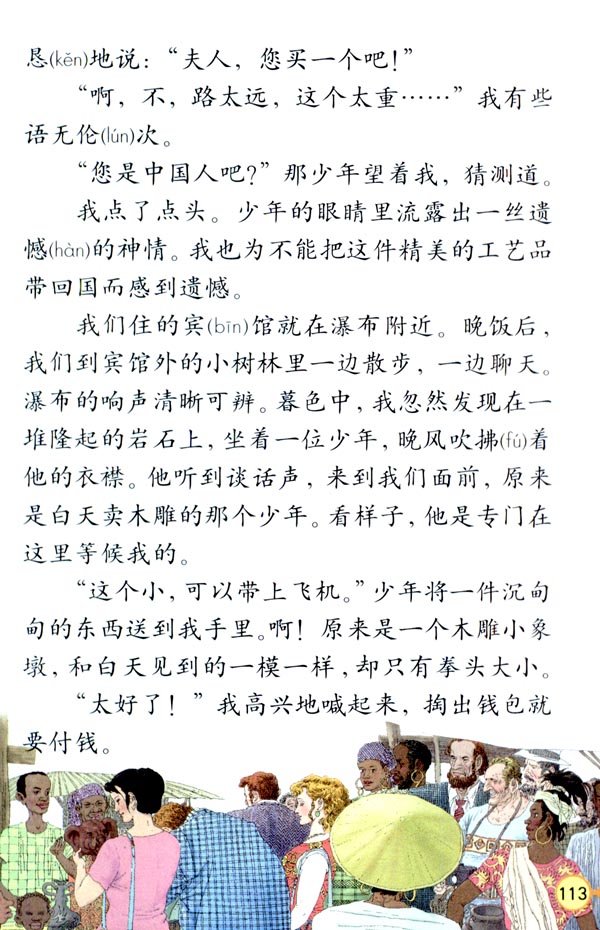 恳(kěn)地说：“夫人，您买一个吧！”
“啊，不，路太远，这个太重……”我有些
语无伦(lún)次。
“您是中国人吧？”那少年望着我，猜测道。
我点了点头。少年的眼睛里流露出一丝遗
憾(hàn)的神情。我也为不能把这件精美的工艺品
带回国而感到遗憾。
我们住的宾(bīn)馆就在瀑布附近。晚饭后，
我们到宾馆外的小树林里一边散步，一边聊天。
瀑布的响声清晰可辨。暮色中，我忽然发现在一
堆隆起的岩石上，坐着一位少年，晚风吹拂(fú)着
他的衣襟。他听到谈话声，来到我们面前，原来
是白天卖木雕的那个少年。看样子，他是专门在
这里等候我的。
“这个小，可以带上飞机。”少年将一件沉甸
甸的东西送到我手里。啊！原来是一个木雕小象
墩，和白天见到的一模一样，却只有拳头大小。
“太好了！”我高兴地喊起来，掏出钱包就
要付钱。
113